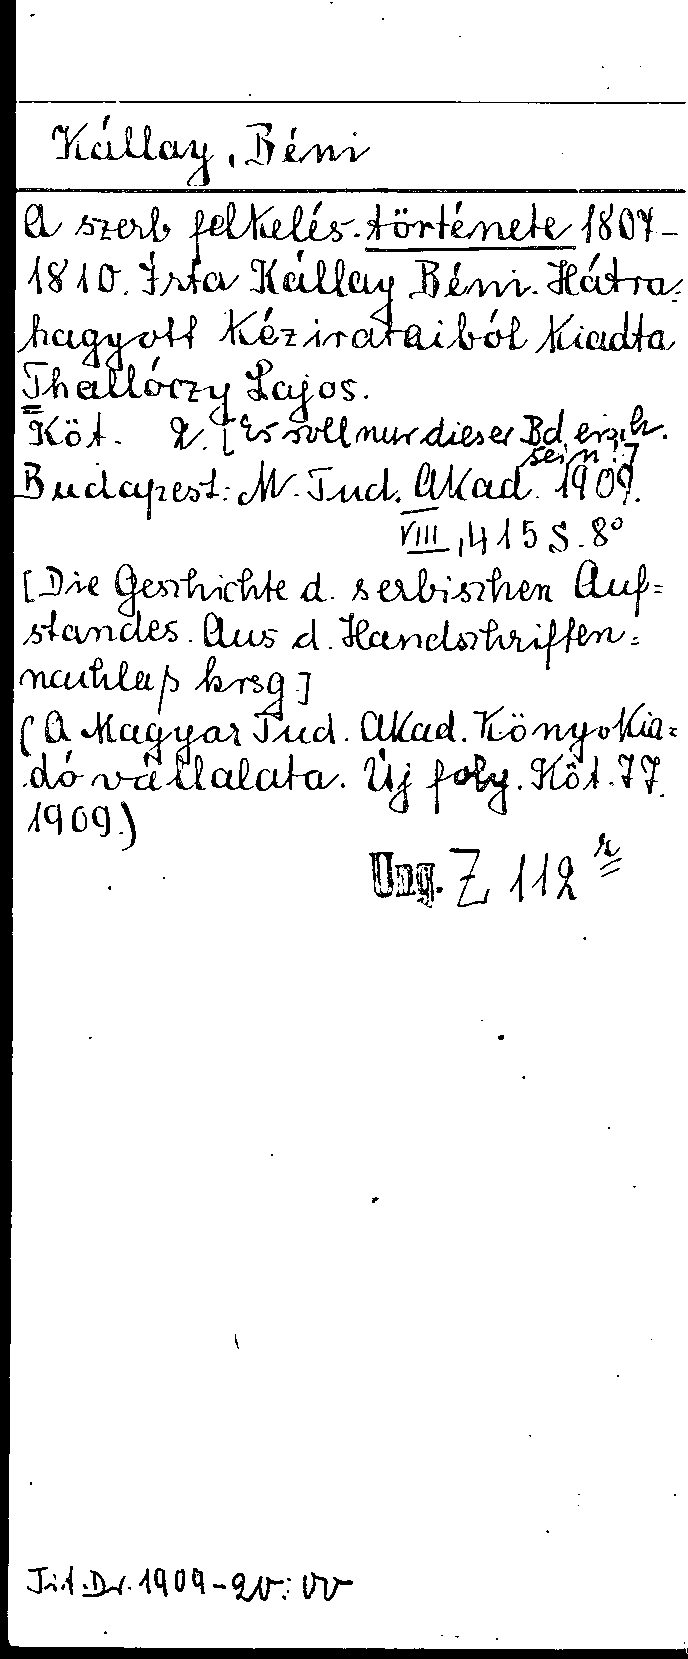 Kállay, Béni
A szerb felkelés története 1807-
1810. Írta Kállay Béni. Hátra-
hagyott kézirataiból kiadta
Thallóczy Lajos.
Köt. 2. [Es soll nur dieser Bd. ersch.
sein.]
Budapest: M. Tud. Akad. 1909.
VIII, 415 S. 8°
[Die Geschichte d. serbischen Auf=
standes. Aus d. Handschriften=
nachlaß hrsg.]
(A Magyar Tud. Akad. Könyvkia=
dó vállalata. Új foly. Köt. 77.
1909.)
Ung. Z 112
Tit. Dr. 1909-